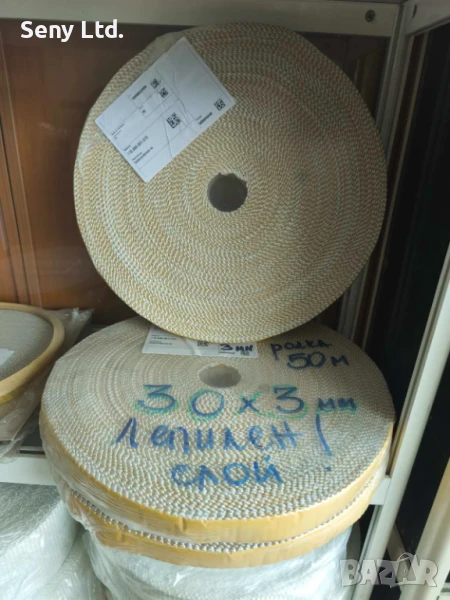 Seny Ltd.
3 мм
ролка
50 м
30 x 3 мм
Лепилен
слой !
BAZAR